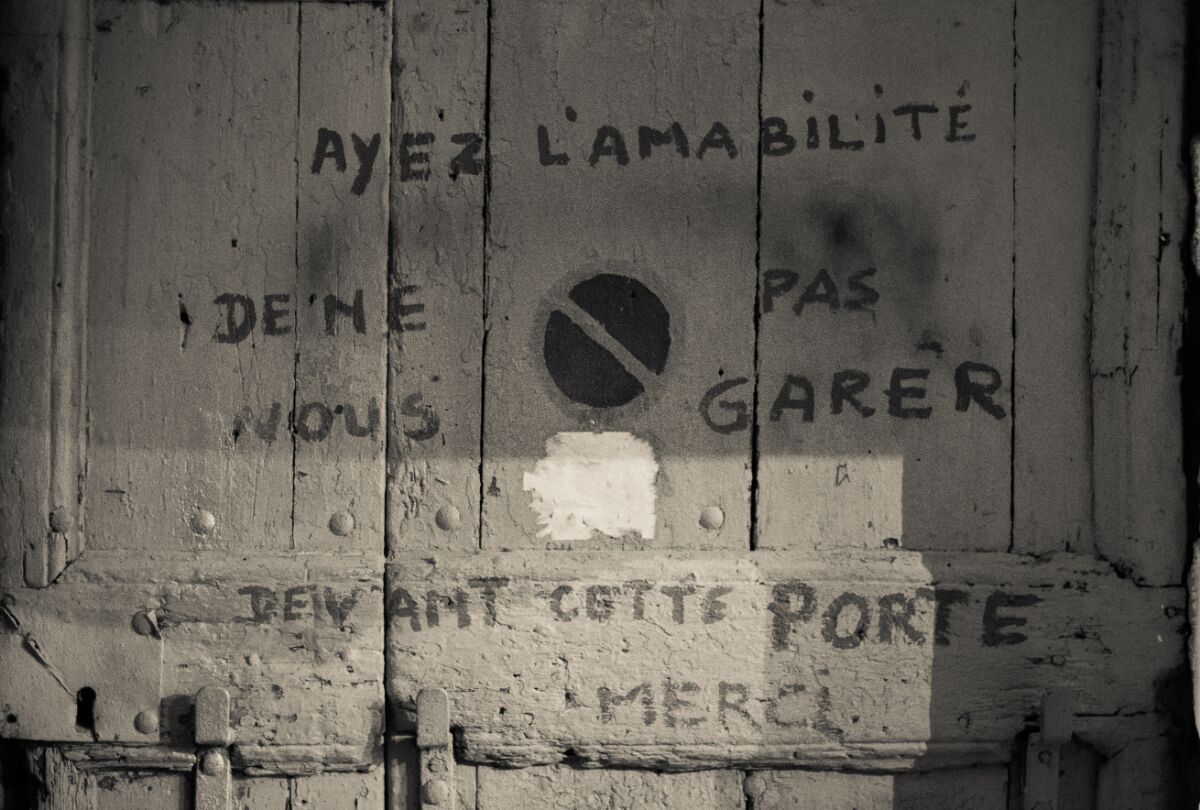 AYEZ L'AMABILITÉ
DE NE PAS
NOUS GARER
DEVANT CETTE PORTE
MERCI